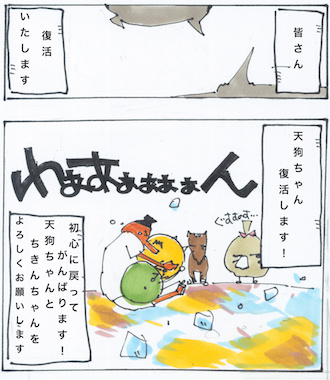 皆さん
復活
いたします
天狗ちゃん
復活します！
わぁあぁぁぁぁん
ぐすすす…
初心に戻って
がんばります！
天狗ちゃんと
ちきんちゃんを
よろしくお願いします